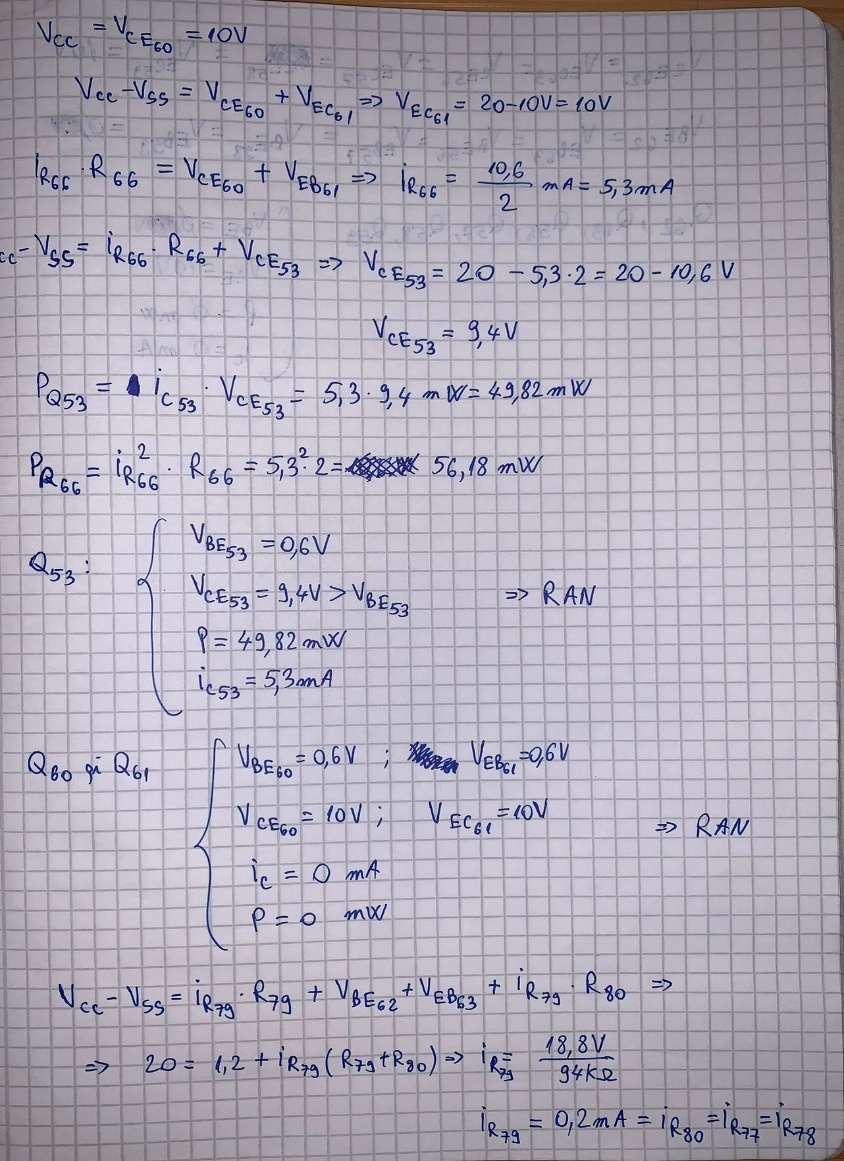 V_CC = V_CE60 = 10V
V_CC - V_SS = V_CE60 + V_EC61 => V_EC61 = 20-10V = 10V
i_R66 · R_66 = V_CE60 + V_EB61 => i_R66 = 10,6/2 mA = 5,3mA
cc - V_SS = i_R66 · R_66 + V_CE53 => V_CE53 = 20 - 5,3·2 = 20 - 10,6 V
V_CE53 = 9,4V
P_Q53 = i_C53 · V_CE53 = 5,3·9,4 mW = 49,82 mW
P_R66 = i_R66² · R_66 = 5,3²·2 = 56,18 mW
Q_53 :
V_BE53 = 0,6V
V_CE53 = 9,4V > V_BE53 => RAN
P = 49,82 mW
i_C53 = 5,3mA
Q_80 și Q_61
V_BE60 = 0,6V ; V_EB61 = 0,6V
V_CE60 = 10V ; V_EC61 = 10V => RAN
i_C = 0 mA
P = 0 mW
V_CC - V_SS = i_R79 · R_79 + V_BE62 + V_EB63 + i_R79 · R_80 =>
=> 20 = 1,2 + i_R79 (R_79 + R_80) => i_R79 = 18,8V/94KΩ
i_R79 = 0,2mA = i_R80 = i_R77 = i_R78